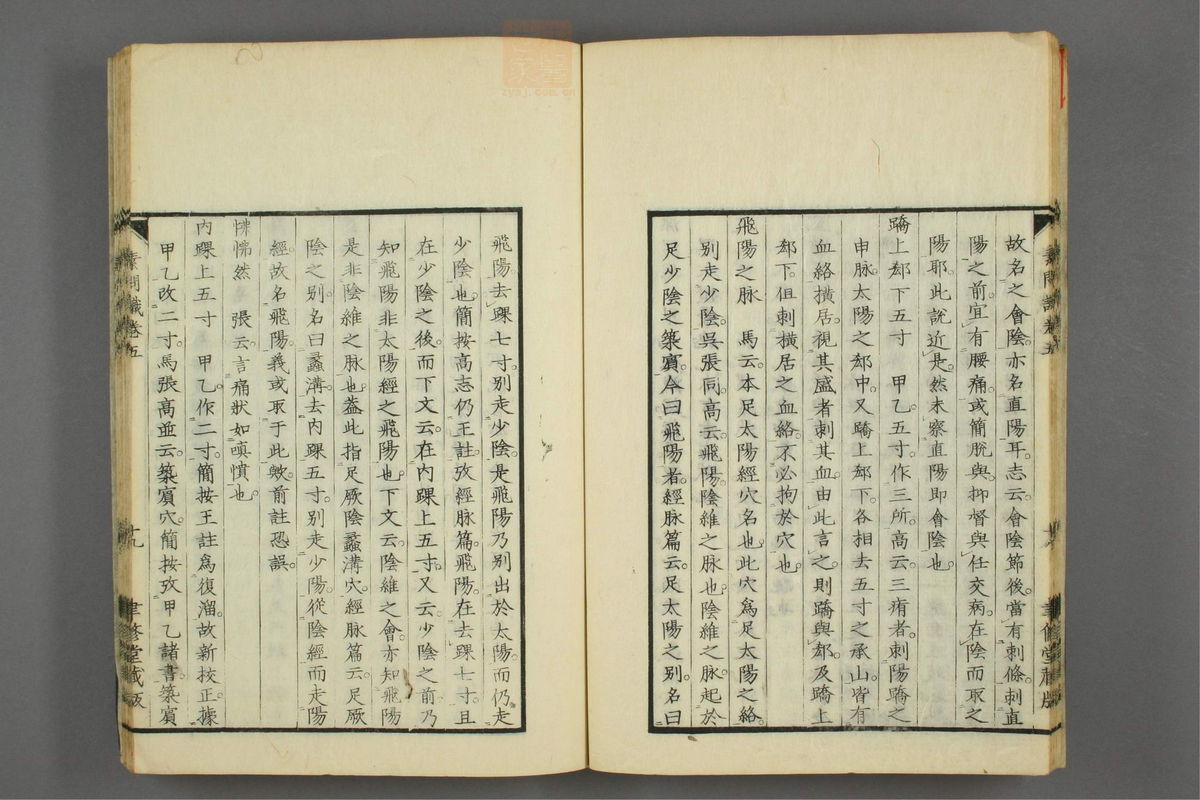 故名之會陰。亦名直陽耳。志云。會陰節後。當有刺條。刺直
陽之前。宜有腰痛。或簡脫與。抑督與任交。病在陰而取之
陽耶。此說近是。然未察直陽即會陰也。
蹻上郄下五寸　甲乙。五寸。作三所。高云。三痏者。刺陽蹻之
申脉。太陽之郄中。又蹻上郄下。各相去五寸之承山。皆有
血絡橫居。視其盛者刺其血。由此言之。則蹻與郄。及蹻上
郄下。但刺橫居之血絡。不必拘於穴也。
飛陽之脉　馬云。本足太陽經穴名也。此穴爲足太陽之絡。
别走少陰。吳張同。高云。飛陽。陰維之脉也。陰維之脉。起於
足少陰之築賓。今曰飛陽者。經脉篇云。足太陽之别。名曰
飛陽。去踝七寸。别走少陰。是飛陽乃别出於太陽。而仍走
少陰也。簡按高志仍王註。攷經脉篇。飛陽。在去踝七寸。且
在少陰之後。而下文云。在内踝上五寸。又云。少陰之前。乃
知飛陽非太陽經之飛陽也。下文云。陰維之會。亦知飛陽
是非陰維之脉也。蓋此指足厥陰蠡溝穴。經脉篇云。足厥
陰之别。名曰蠡溝。去内踝五寸。别走少陽。從陰經而走陽
經。故名飛陽。義或取于此歟。前註恐誤。
怫怫然　張云。言痛狀如嗔憤也。
内踝上五寸　甲乙。作二寸。簡按王註爲復溜。故新校正。據
甲乙改二寸。馬張高並云。築賓穴。簡按攷甲乙諸書。築賓
素問識卷五
十九
聿修堂藏版